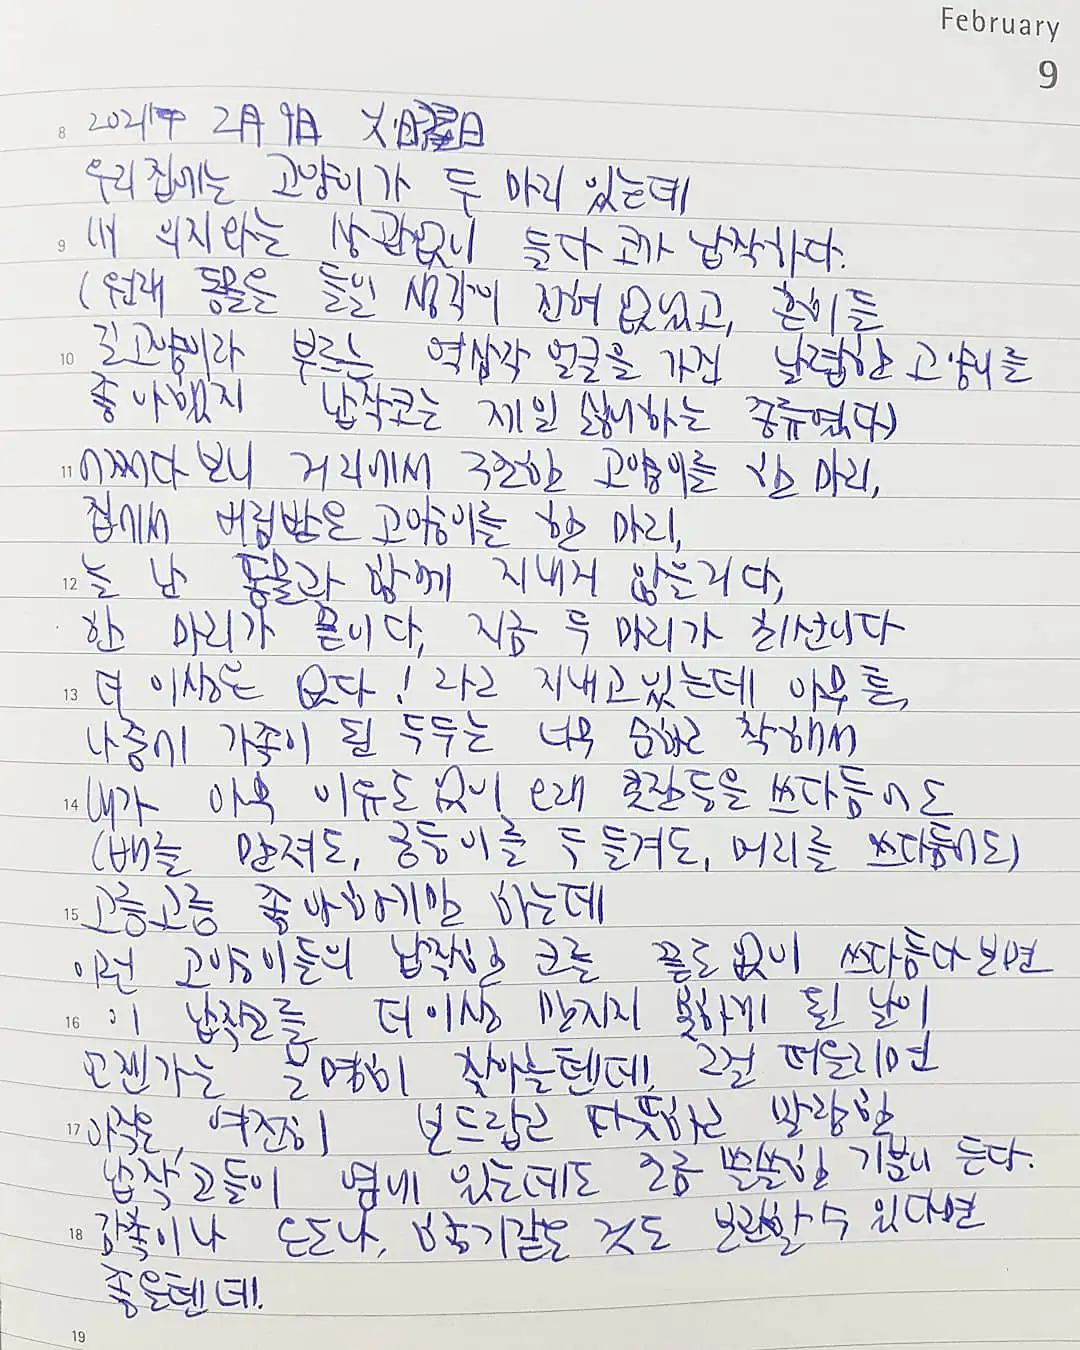 February
9
8 2021年 2月 9日 火曜日
우리집에는 고양이가 두 마리 있는데
9 내 의지와는 상관없이 둘다 코가 납작하다.
(원래 동물을 들일 생각이 전혀 없었고, 흔히들
10 길고양이라 부르는 역삼각 얼굴을 가진 날렵한 고양이를
좋아했지 납작코는 제일 싫어하는 종류였다)
11 어쩌다보니 거리에서 구조한 고양이를 한 마리,
집에서 버림받은 고양이를 한 마리,
12 늘 난 동물과 함께 지내지 않을거다,
한 마리가 끝이다, 지금 두 마리가 최선이다
13 더 이상은 없다! 라고 지내고있는데 아무튼,
나중에 가족이 된 두두는 너무 순하고 착해서
14 내가 아무 이유도 없이 오래 쓰다듬어도
(배를 만져도, 궁둥이를 두들겨도, 머리를 쓰다듬어도)
15 고릉고릉 좋아하기만 하는데
이런 고양이들의 납작한 코를 끝도없이 쓰다듬다보면
16 이 납작코를 더이상 만지지 못하게 될 날이
언젠가는 분명히 찾아올텐데, 그걸 떠올리면
17 아직은, 여전히 보드랍고 따뜻하고 말랑한
납작코들이 옆에 있는데도 조금 쓸쓸한 기분이 든다.
18 감촉이나 온도나, 향기같은 것도 보관할 수 있다면
좋을텐데.
19